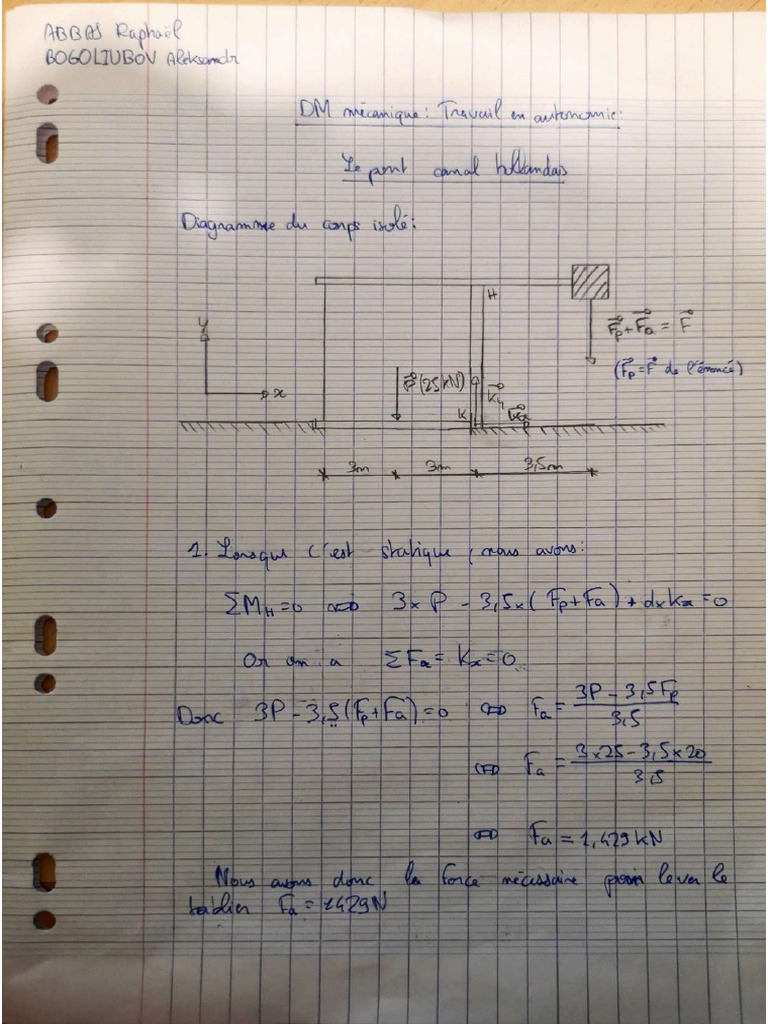 ABBAS Raphaël
BOGOLIUBOV Aleksandr
DM mécanique: Travail en autonomie:
Le pont canal hollandais
Diagramme du corps isolé:
y
x
H
Fp + Fa = F
(Fp = F de l'énoncé)
P (25kN)
Ky
K
Kx
3m 3m 3,5m
1. Lorsque c'est statique, nous avons:
ΣM_H=0 ⇔ 3×P - 3,5×(Fp+Fa) + d×Kx=0
Or on a ΣFx = Kx = 0
Donc 3P - 3,5(Fp+Fa)=0 ⇔ Fa = (3P - 3,5Fp)/3,5
⇔ Fa = (3×25 - 3,5×20)/3,5
⇔ Fa = 1,429 kN
Nous avons donc la force nécessaire pour lever le
tablier Fa = 1429N